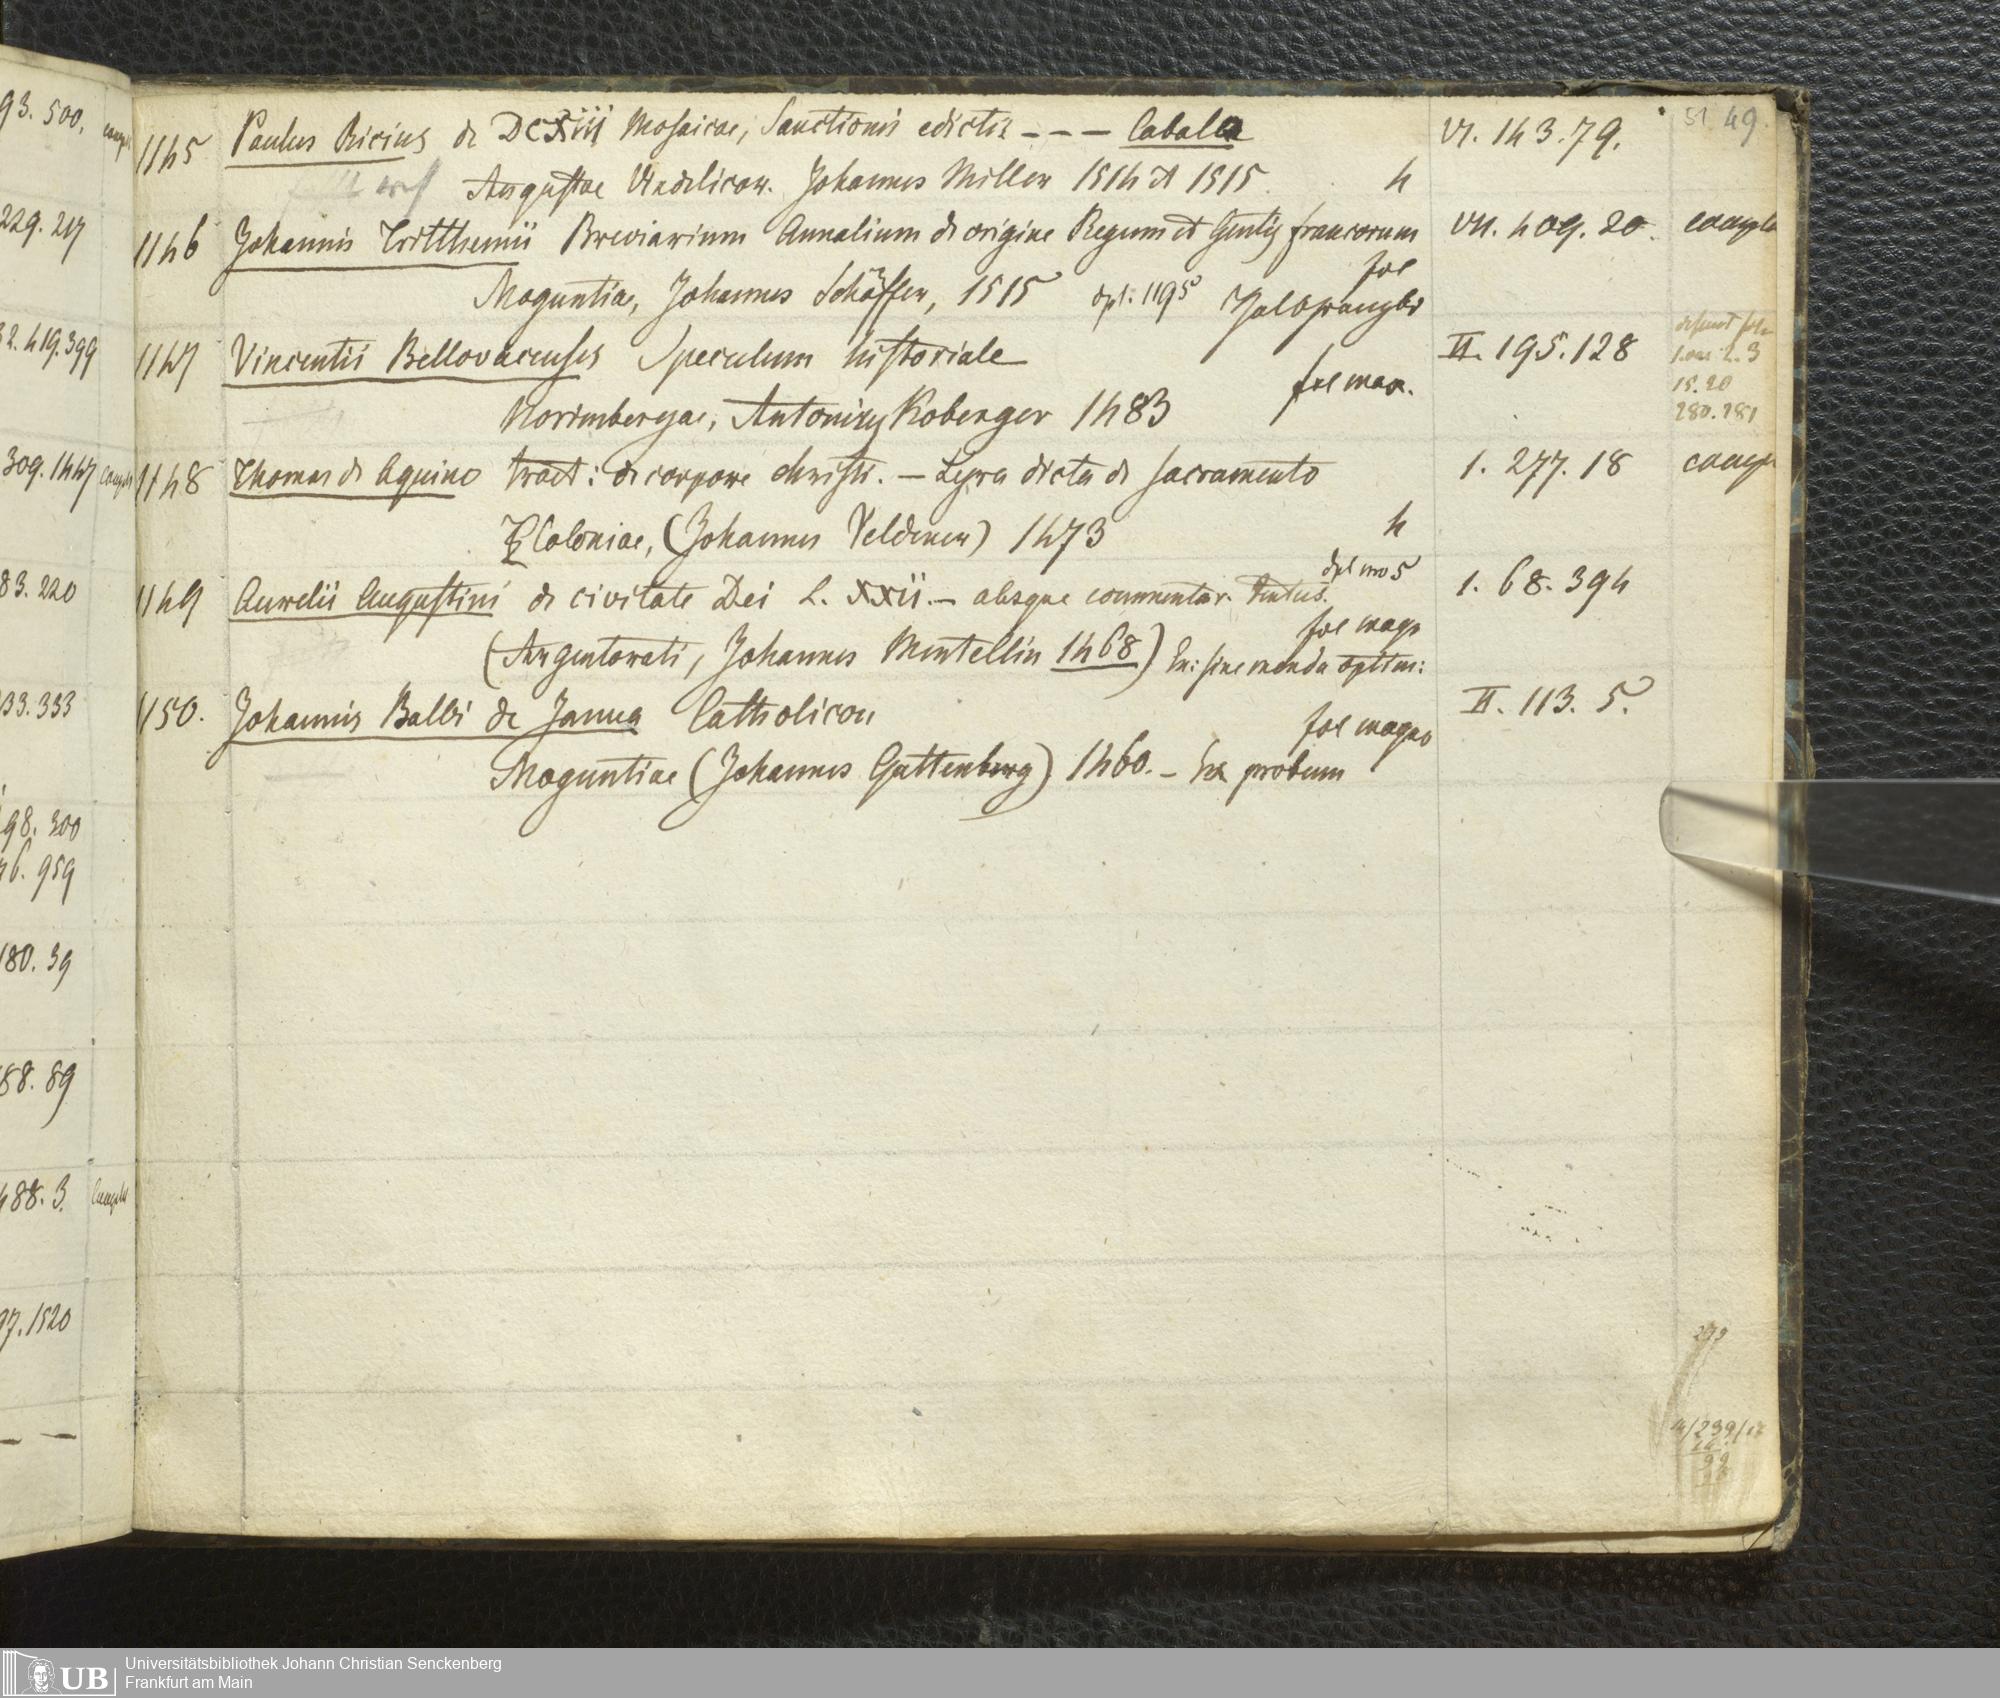 93. 500.
229. 217
32. 419. 399
309. 1447
83. 220
33. 333
98. 300
76. 959
180. 39
58. 89
488. 3.
97. 1520
51 49.
1145 Paulus Ricius de DCXiii Mosaicae, Sanctionis edictis - - - Cabala VI. 143. 79.
Augustae Vindelicor. Johannes Miller 1514 et 1515. 4
1146 Johannis Tritthemii Breviarium Annalium de origine Regum et Gentis francorum VII. 409. 20. complet
fol
Moguntiae, Johannes Schöffer, 1515 dpl: 1195 Halbfranzbd
1147 Vincentii Bellovacensis Speculum historiale II. 195. 128
desunt fol.
1. 2. 3
15. 20
280. 281
fol max.
Norimbergae, Antonius Koberger 1483
1148 Thomas de Aquino tract: de corpore christi. — Legra dicta de sacramento 1. 277. 18 comp
Coloniae, (Johannes Veldener) 1473 4
dpl no 5
1149 Aurelii Augustini de civitate Dei L. XXii. — absque commentar. 1. 68. 394
fol magn
(Argentorati, Johannes Mentellin 1468) Ex: sine menda optim:
1150. Johannis Balbi de Janua Catholicon II. 113. 5.
fol magno
Moguntiae (Johannes Guttenberg) 1460. — Ex probum
239
14/239/17
99
UB
Universitätsbibliothek Johann Christian Senckenberg
Frankfurt am Main